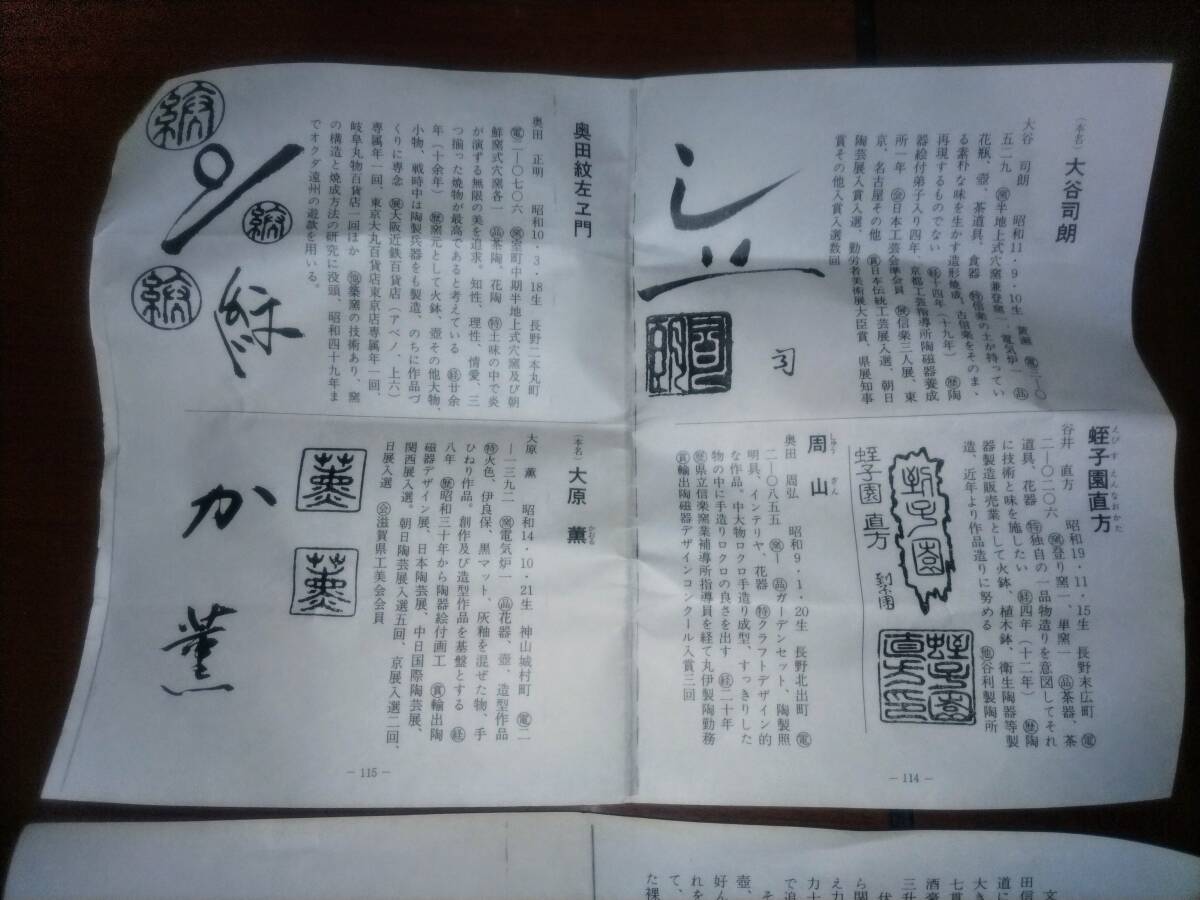 (本名) 大谷司朗
大谷 司朗 昭和11・9・10生 黄瀬 電二―〇
五二九 窯半地上式穴窯兼登窯一、電気炉一 品
花瓶、壺、茶道具、食器 特信楽の土が持ってい
る素朴な味を生かす造形焼成、古信楽をそのまゝ
再現するものでない 経十四年(十九年) 歴陶
器絵付弟子入り四年、京都工芸指導所陶磁器養成
所一年 会日本工芸会準会員 展信楽三人展、東
京、名古屋その他 賞日本伝統工芸展入選、朝日
陶芸展入賞入選、勤労者美術展大臣賞、県展知事
賞その他入賞入選数回
司
蛭子園直方
えびす えんなおかた
谷井 直方 昭和19・11・15生 長野末広町 電
二―〇二〇六 窯登り窯一、単窯一 品茶器、茶
道具、花器 特独自の一品物造りを意図してそれ
に技術と味を施したい 経四年(十二年) 歴陶
器製造販売業として火鉢、植木鉢、衛生陶器等製
造、近年より作品造りに努める 他谷利製陶所
蛭子園 直方
周山
しゅう ざん
奥田 周弘 昭和9・1・20生 長野北出町 電
二―〇八五五 窯― 品ガーデンセット、陶製照
明具、インテリヤ、花器 特クラフトデザイン的
な作品。中大物ロクロ手造り成型、すっきりした
物の中に手造りロクロの良さを出す 経二十年
歴県立信楽窯業補導所指導員を経て丸伊製陶勤務
賞輸出陶磁器デザインコンクール入賞三回
― 114 ―
奥田紋左ヱ門
奥田 正明 昭和10・3・18生 長野二本丸町
電二―〇七〇六 窯室町中期半地上式穴窯及び朝
鮮窯式穴窯各一 品茶陶、花陶 特土味の中で炎
が演ずる無限の美を追求。知性、理性、情愛、三
つ揃った焼物が最高であると考えている 経廿余
年(十余年) 歴窯元として火鉢、壺その他大物、
小物、戦時中は陶製兵器をも製造、のちに作品づ
くりに専念 展大阪近鉄百貨店(アベノ、上六)
専属年一回、東京大丸百貨店東京店専属年一回、
岐阜丸物百貨店一回ほか 他築窯の技術あり、窯
の構造と焼成方法の研究に没頭、昭和四十九年ま
でオクダ遠州の遊款を用いる。
(本名) 大原 薫
かおる
大原 薫 昭和14・10・21生 神山城村町 電二
―一三九二 窯電気炉一 品花器、壺、造型作品
特火色、伊良保、黒マット、灰釉を混ぜた物、手
ひねり作品。創作及び造型作品を基盤とする 経
八年 歴昭和三十年から陶器絵付画工 賞輸出陶
磁器デザイン展、日本陶芸展、中日国際陶芸展、
関西展入選。朝日陶芸展入選五回、京展入選二回、
日展入選 会滋賀県工美会会員
か
薫
― 115 ―